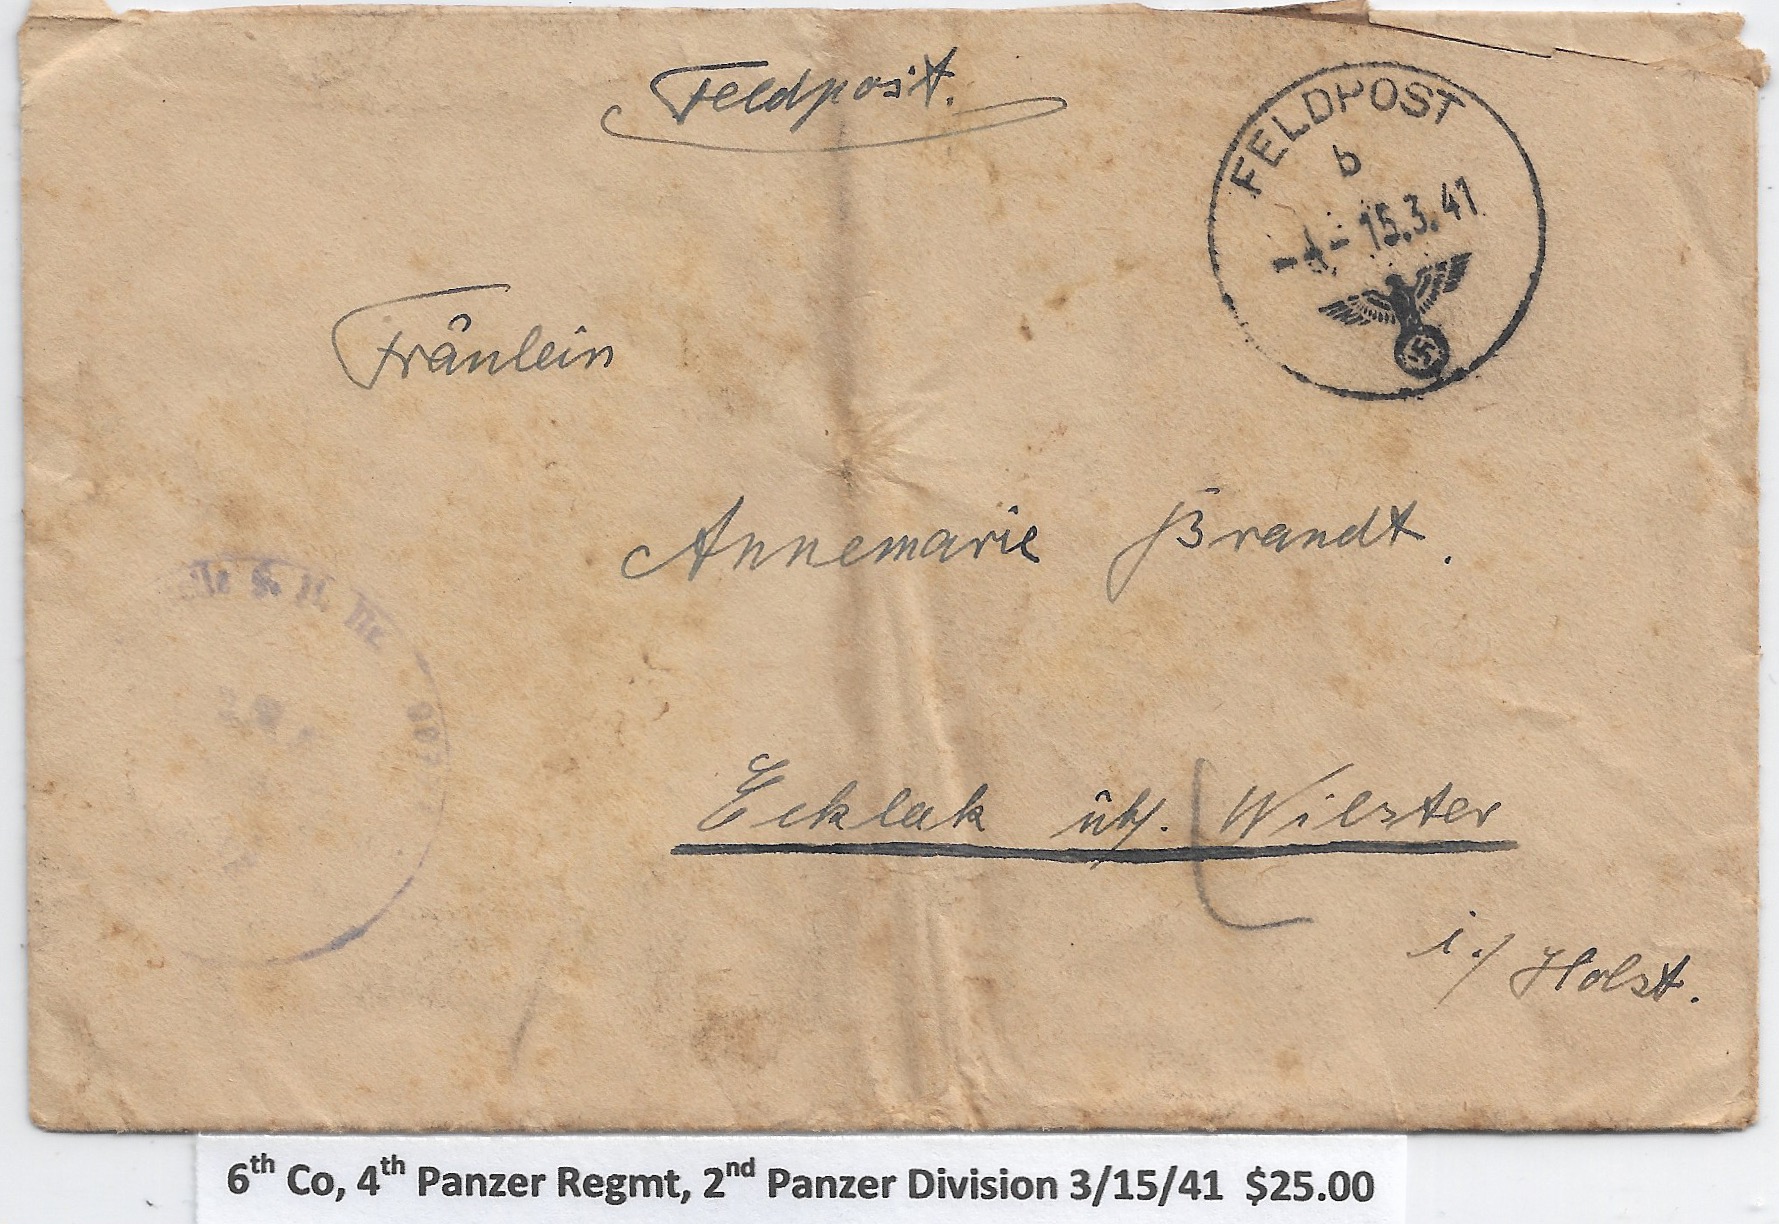 Feldpost.
FELDPOST
b
15.3.41
Fräulein
Annemarie Brandt.
Ecklak üb. Wilster
i./ Holst.
6th Co, 4th Panzer Regmt, 2nd Panzer Division 3/15/41 $25.00